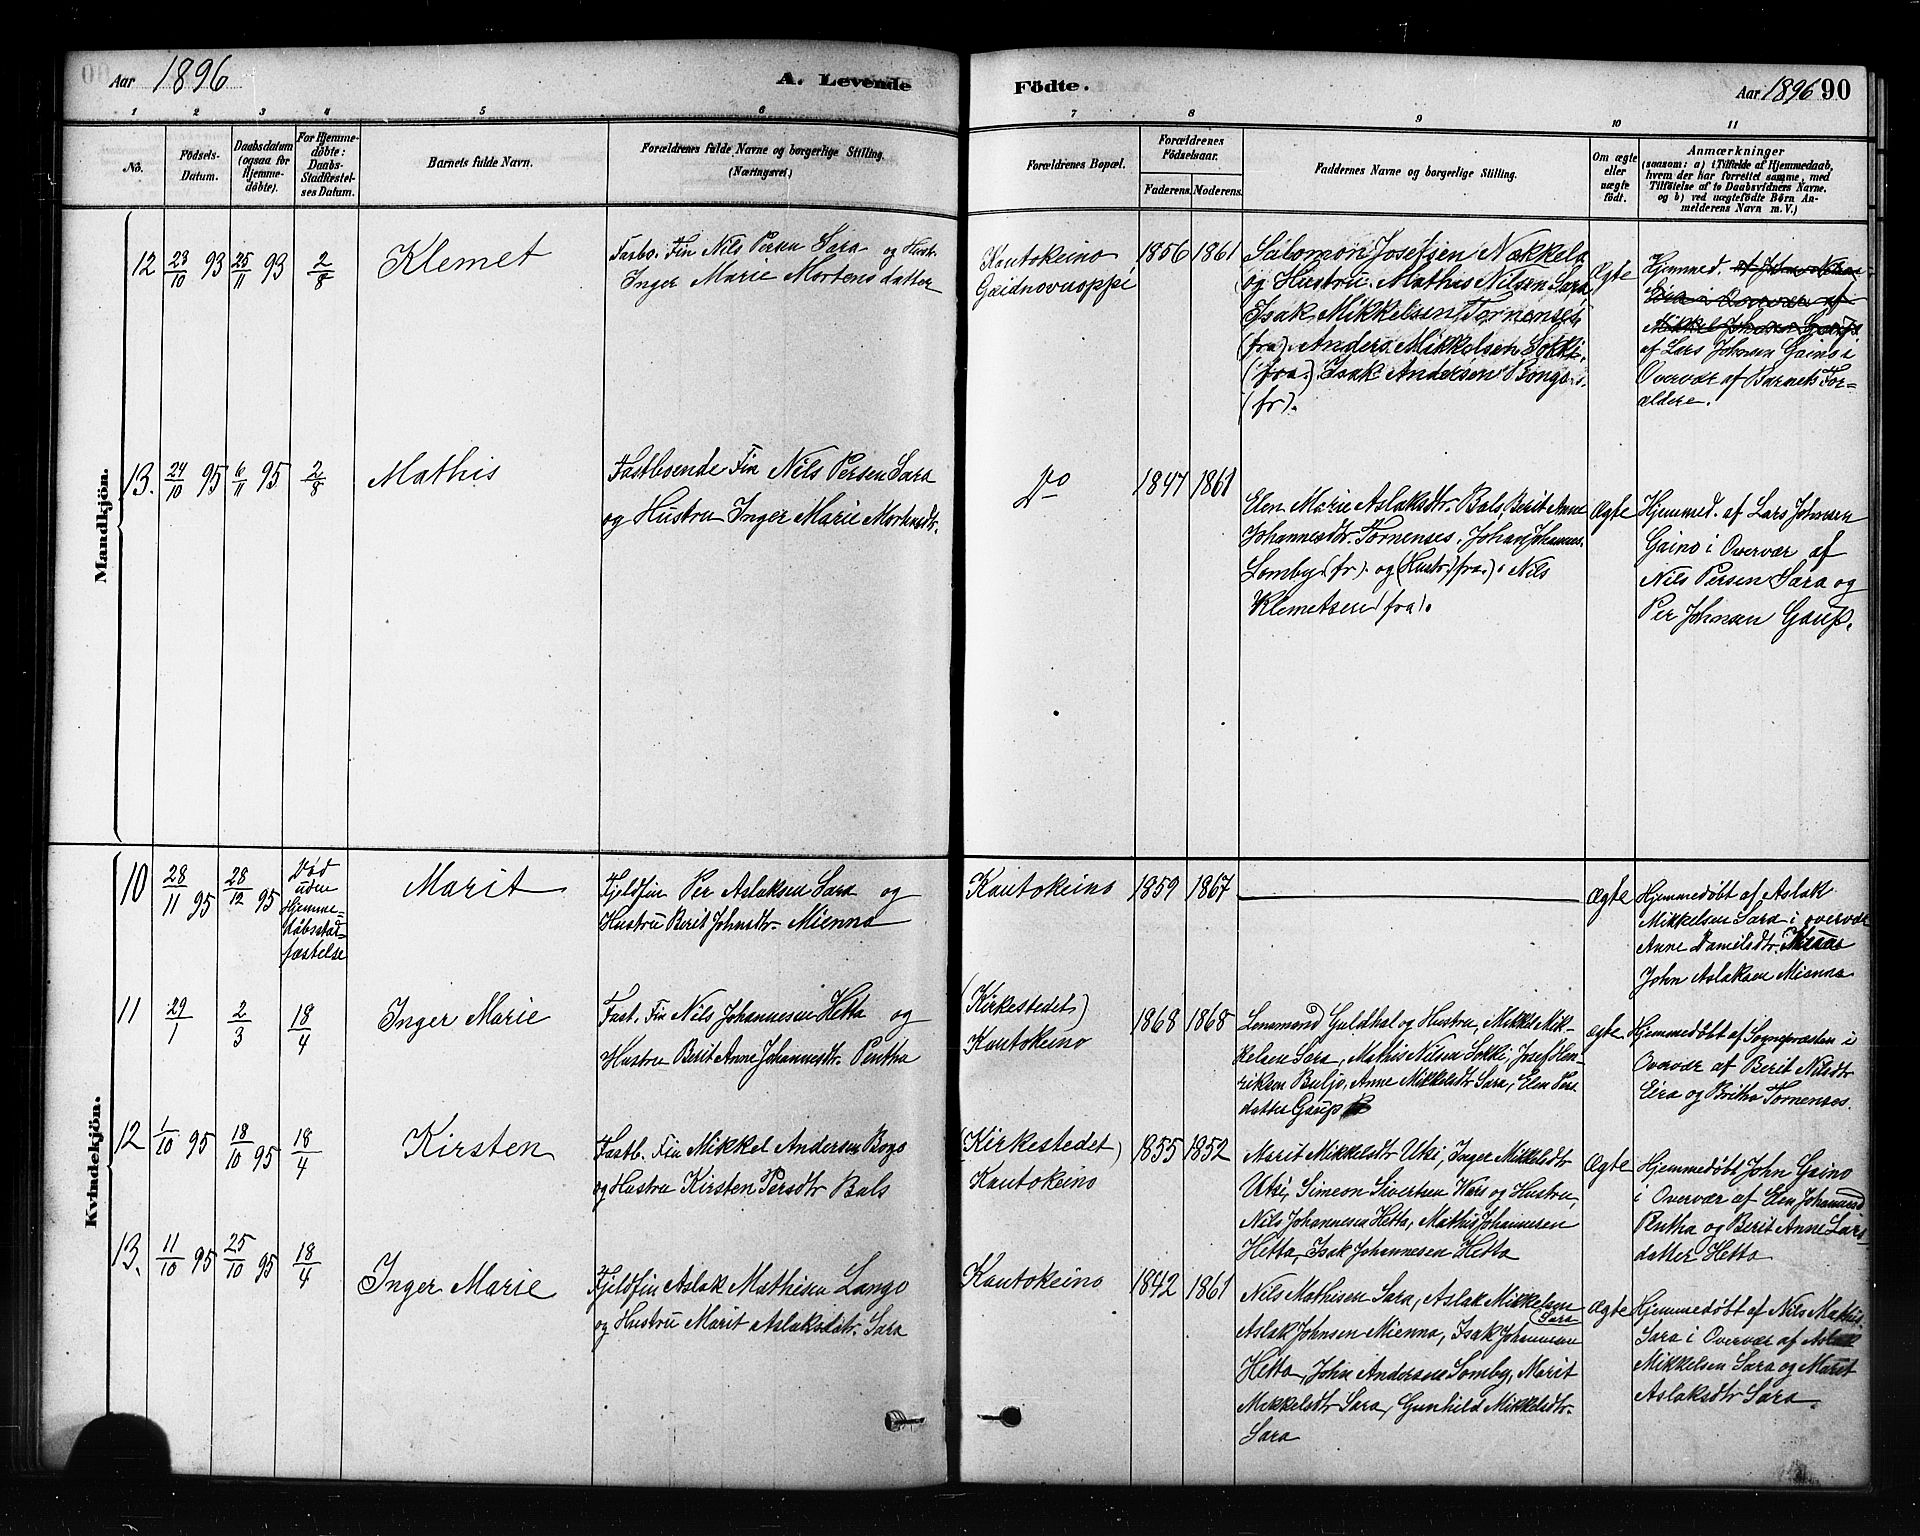 Aar 1896
A. Levende
Födte.
Aar 1896 90
1 2 3 4 5 6 7 8 9 10 11
No.
Födsels-
Datum.
Daabsdatum
(ogsaa for
Hjemme-
döbte).
For Hjemme-
döbte:
Daabs-
Stadfæstel-
ses Datum.
Barnets fulde Navn.
Forældrenes fulde Navne og borgerlige Stilling.
(Næringsvei)
Forældrenes Bopæl.
Forældrenes
Födselsaar.
Faderens. Moderens.
Faddernes Navne og borgerlige Stilling.
Om ægte
eller
uægte
födt.
Anmærkninger
(saasom: a) i Tilfælde af Hjemmedaab,
hvem der har forrettet samme, med
Tilföielse af to Daabsvidners Navne.
og b) ved uægtefödte Börn An-
melderens Navn m. V.)
Mandkjön.
12 23/10 93 25/11 93 2/8
Klemet
Fastbo. Fin Nils Persen Sara og Hust.
Inger Marie Mortensdatter
Kautokeino
Gæidnovuoppi
1856 1861
Salomon Josefsen Nækkela
og Hustru. Mathis Nilsen Sara
Isak Mikkelsen Tornenses
(fra). Anders Mikkelsen Sokki.
(fra.) Isak Andersen Bongo.
(fr).
Ægte
Hjemmed.
af Lars Johnsen Gaino i
Overvær af Barnets For-
ældere.
13. 24/10 95 6/11 95 2/8
Mathis
Fastboende Fin Nils Persen Sara
og Hustru Inger Marie Mortensdtr.
Do
1847 1861
Elen Marie Aslaksdtr. Bals, Berit Anne
Johannesdtr. Tornenses. Johan Johannes.
Somby (fr). og (Hustr.) fra.). Nils
Klemetsen (fra).
Ægte
Hjemmed. af Lars Johnsen
Gaino i Overvær af
Nils Persen Sara og
Per Johnsen Gaup.
Kvindekjön.
10 28/11 95 28/12 95
Död
uden
Hjemme-
döbsstad-
fæstelse
Marit
Fjeldfin Per Aslaksen Sara og
Hustru Berit Johnsdtr. Mienna
Kautokeino
1859 1867
Ægte
Hjemmedøbt af Aslak
Mikkelsen Sara i overvær
Anne Danielsdtr.
John Aslaksen Mienna
11 29/1 2/3 18/4
Inger Marie
Fast. Fin Nils Johannesen Hetta og
Hustru Berit Anne Johannesdtr. Pentha
(Kirkestedet)
Kautokeino
1868 1868
Lensmand Guldhal og Hustru, Mikkel Mik-
kelsen Sara, Mathis Nilsen Sokki, Josef Hen-
riksen Buljo, Anne Mikkelsdtr Sara, Elen Pers
datter Gaup
ægte
Hjemmedøbt af Sognepræsten i
Overvær af Berit Nilsdtr
Eira og Britha Tornenses.
12 1/10 95 18/10 95 18/4
Kirsten
Fastb. Fin Mikkel Andersen Bogo
og Hustru Kirsten Persdtr Bals
(Kirkestedet)
Kautokeino
1855 1852
Marit Mikkelsdtr Utsi, Inger Mikkelsdtr
Utsi, Simeon Sivertsen Wars og Hustru,
Nils Johannesen Hetta, Mathis Johannesen
Hetta, Isak Johannesen Hetta
Ægte
Hjemmedøbt John Gaino
i Overvær af Elen Johannesd
Pentha og Berit Anne Lars-
datter Hetta
13. 11/10 95 25/10 95 18/4
Inger Marie
Fjeldfin Aslak Mathisen Lango
og Hustru Marit Aslaksdatr. Sara
Kautokeino
1842 1861
Nils Mathisen Sara, Aslak Mikkelsen
Sara
Aslak Johnsen Mienna, Isak Johannesen
Hetta, John Andersen Somby, Marit
Mikkelsdtr Sara, Gunhild Mikkelsdtr.
Sara
ægte
Hjemmedøbt af Nils Mathis.
Sara i Overvær af Aslak
Mikkelsen Sara og Marit
Aslaksdtr Sara.